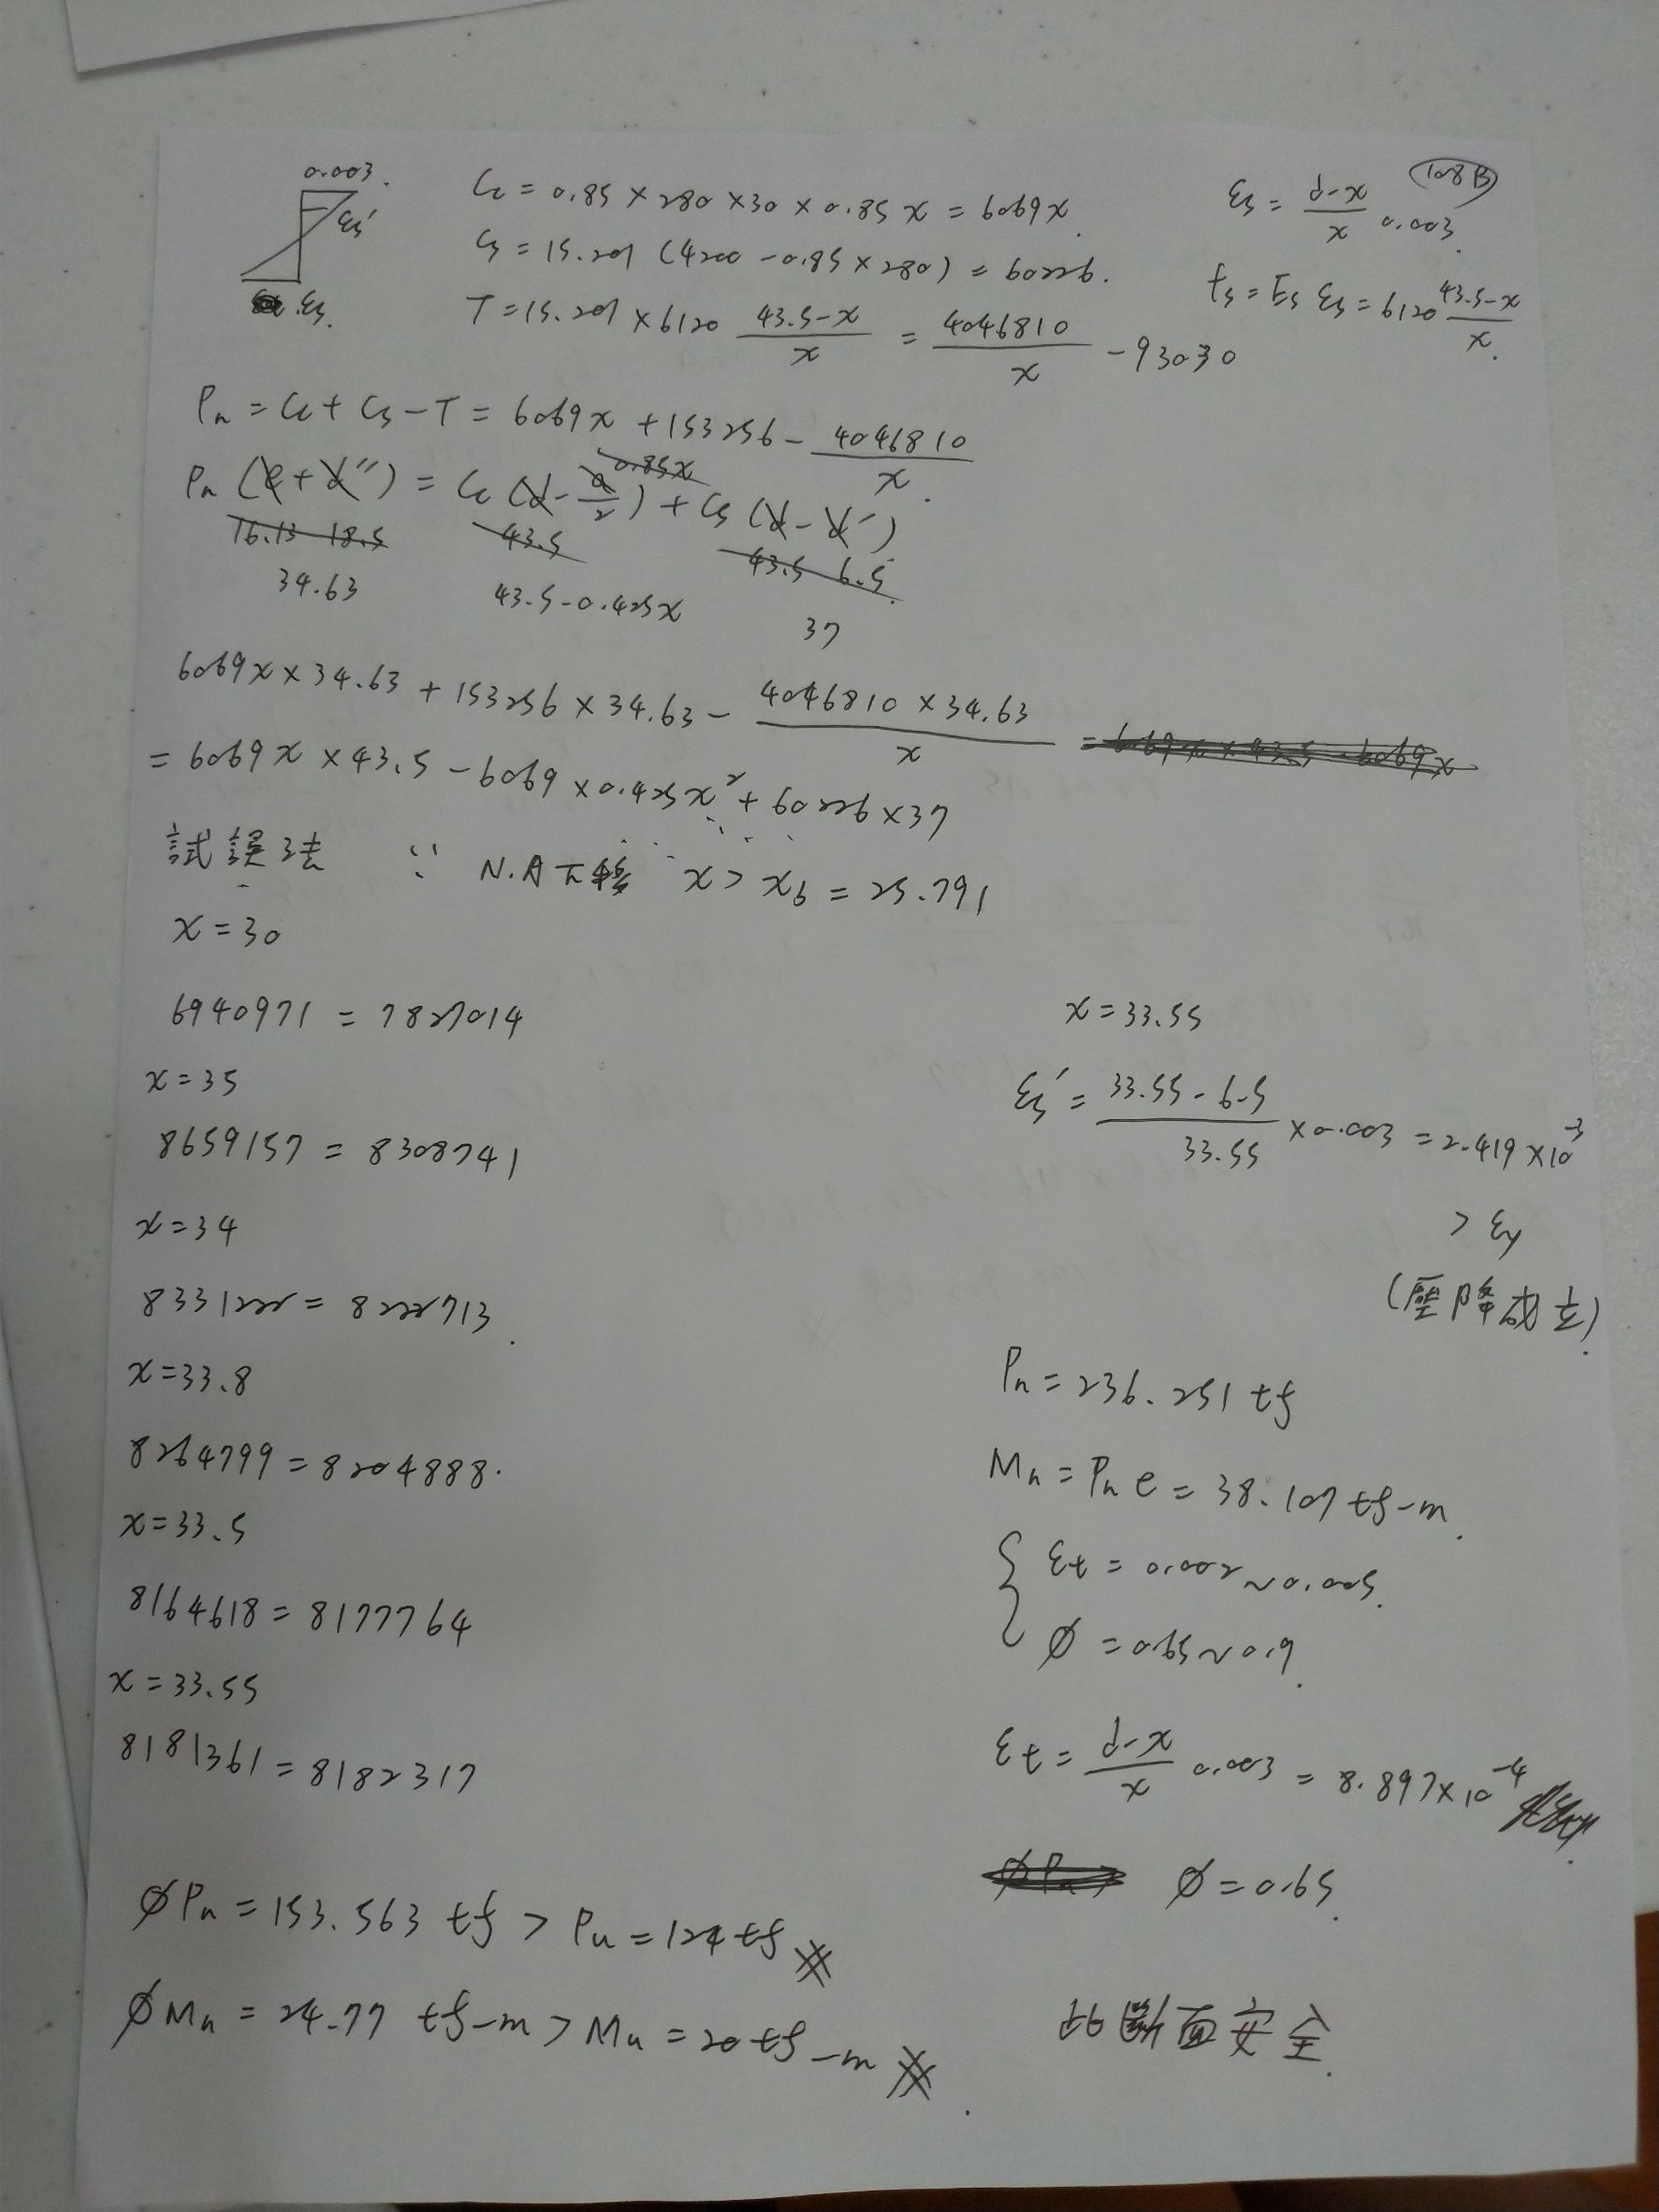 0.003.
εs'
εs.
Cc = 0.85 × 280 × 30 × 0.85 x = 6069x.
Cs = 15.201 (4200 - 0.85 × 280) = 60226.
T = 15.201 × 6120 \frac{43.5-x}{x} = \frac{4046810}{x} - 93030
108B
εs = \frac{d-x}{x} 0.003.
fs = Es εs = 6120 \frac{43.5-x}{x}.
Pn = Cc + Cs - T = 6069x + 153256 - \frac{4046810}{x}.
Pn (e + d'') = Cc (d - \frac{a}{2}) + Cs (d - d')
0.85x
16.13 18.5 43.5 43.5 6.5
34.63 43.5-0.425x 37
6069x × 34.63 + 153256 × 34.63 - \frac{4046810 × 34.63}{x} = 6069x × 43.5 - 6069x
= 6069x × 43.5 - 6069 × 0.425x² + 60226 × 37
試誤法 ∵ N.A下移 x > xb = 25.791
x = 30
6940971 = 7827014
x = 35
8659157 = 8308741
x = 34
8331222 = 8222713.
x = 33.8
8264799 = 8204888.
x = 33.5
8164618 = 8177764
x = 33.55
8181361 = 8182317
x = 33.55
εs' = \frac{33.55-6.5}{33.55} × 0.003 = 2.419 × 10⁻³
> εy
(壓降成立).
Pn = 236.251 tf
Mn = Pn e = 38.107 tf-m.
{ εt = 0.002 ~ 0.005.
φ = 0.65 ~ 0.9.
εt = \frac{d-x}{x} 0.003 = 8.897 × 10⁻⁴
φPn φ = 0.65.
φPn = 153.563 tf > Pu = 124 tf
φMn = 24.77 tf-m > Mu = 20 tf-m.
此斷面安全.